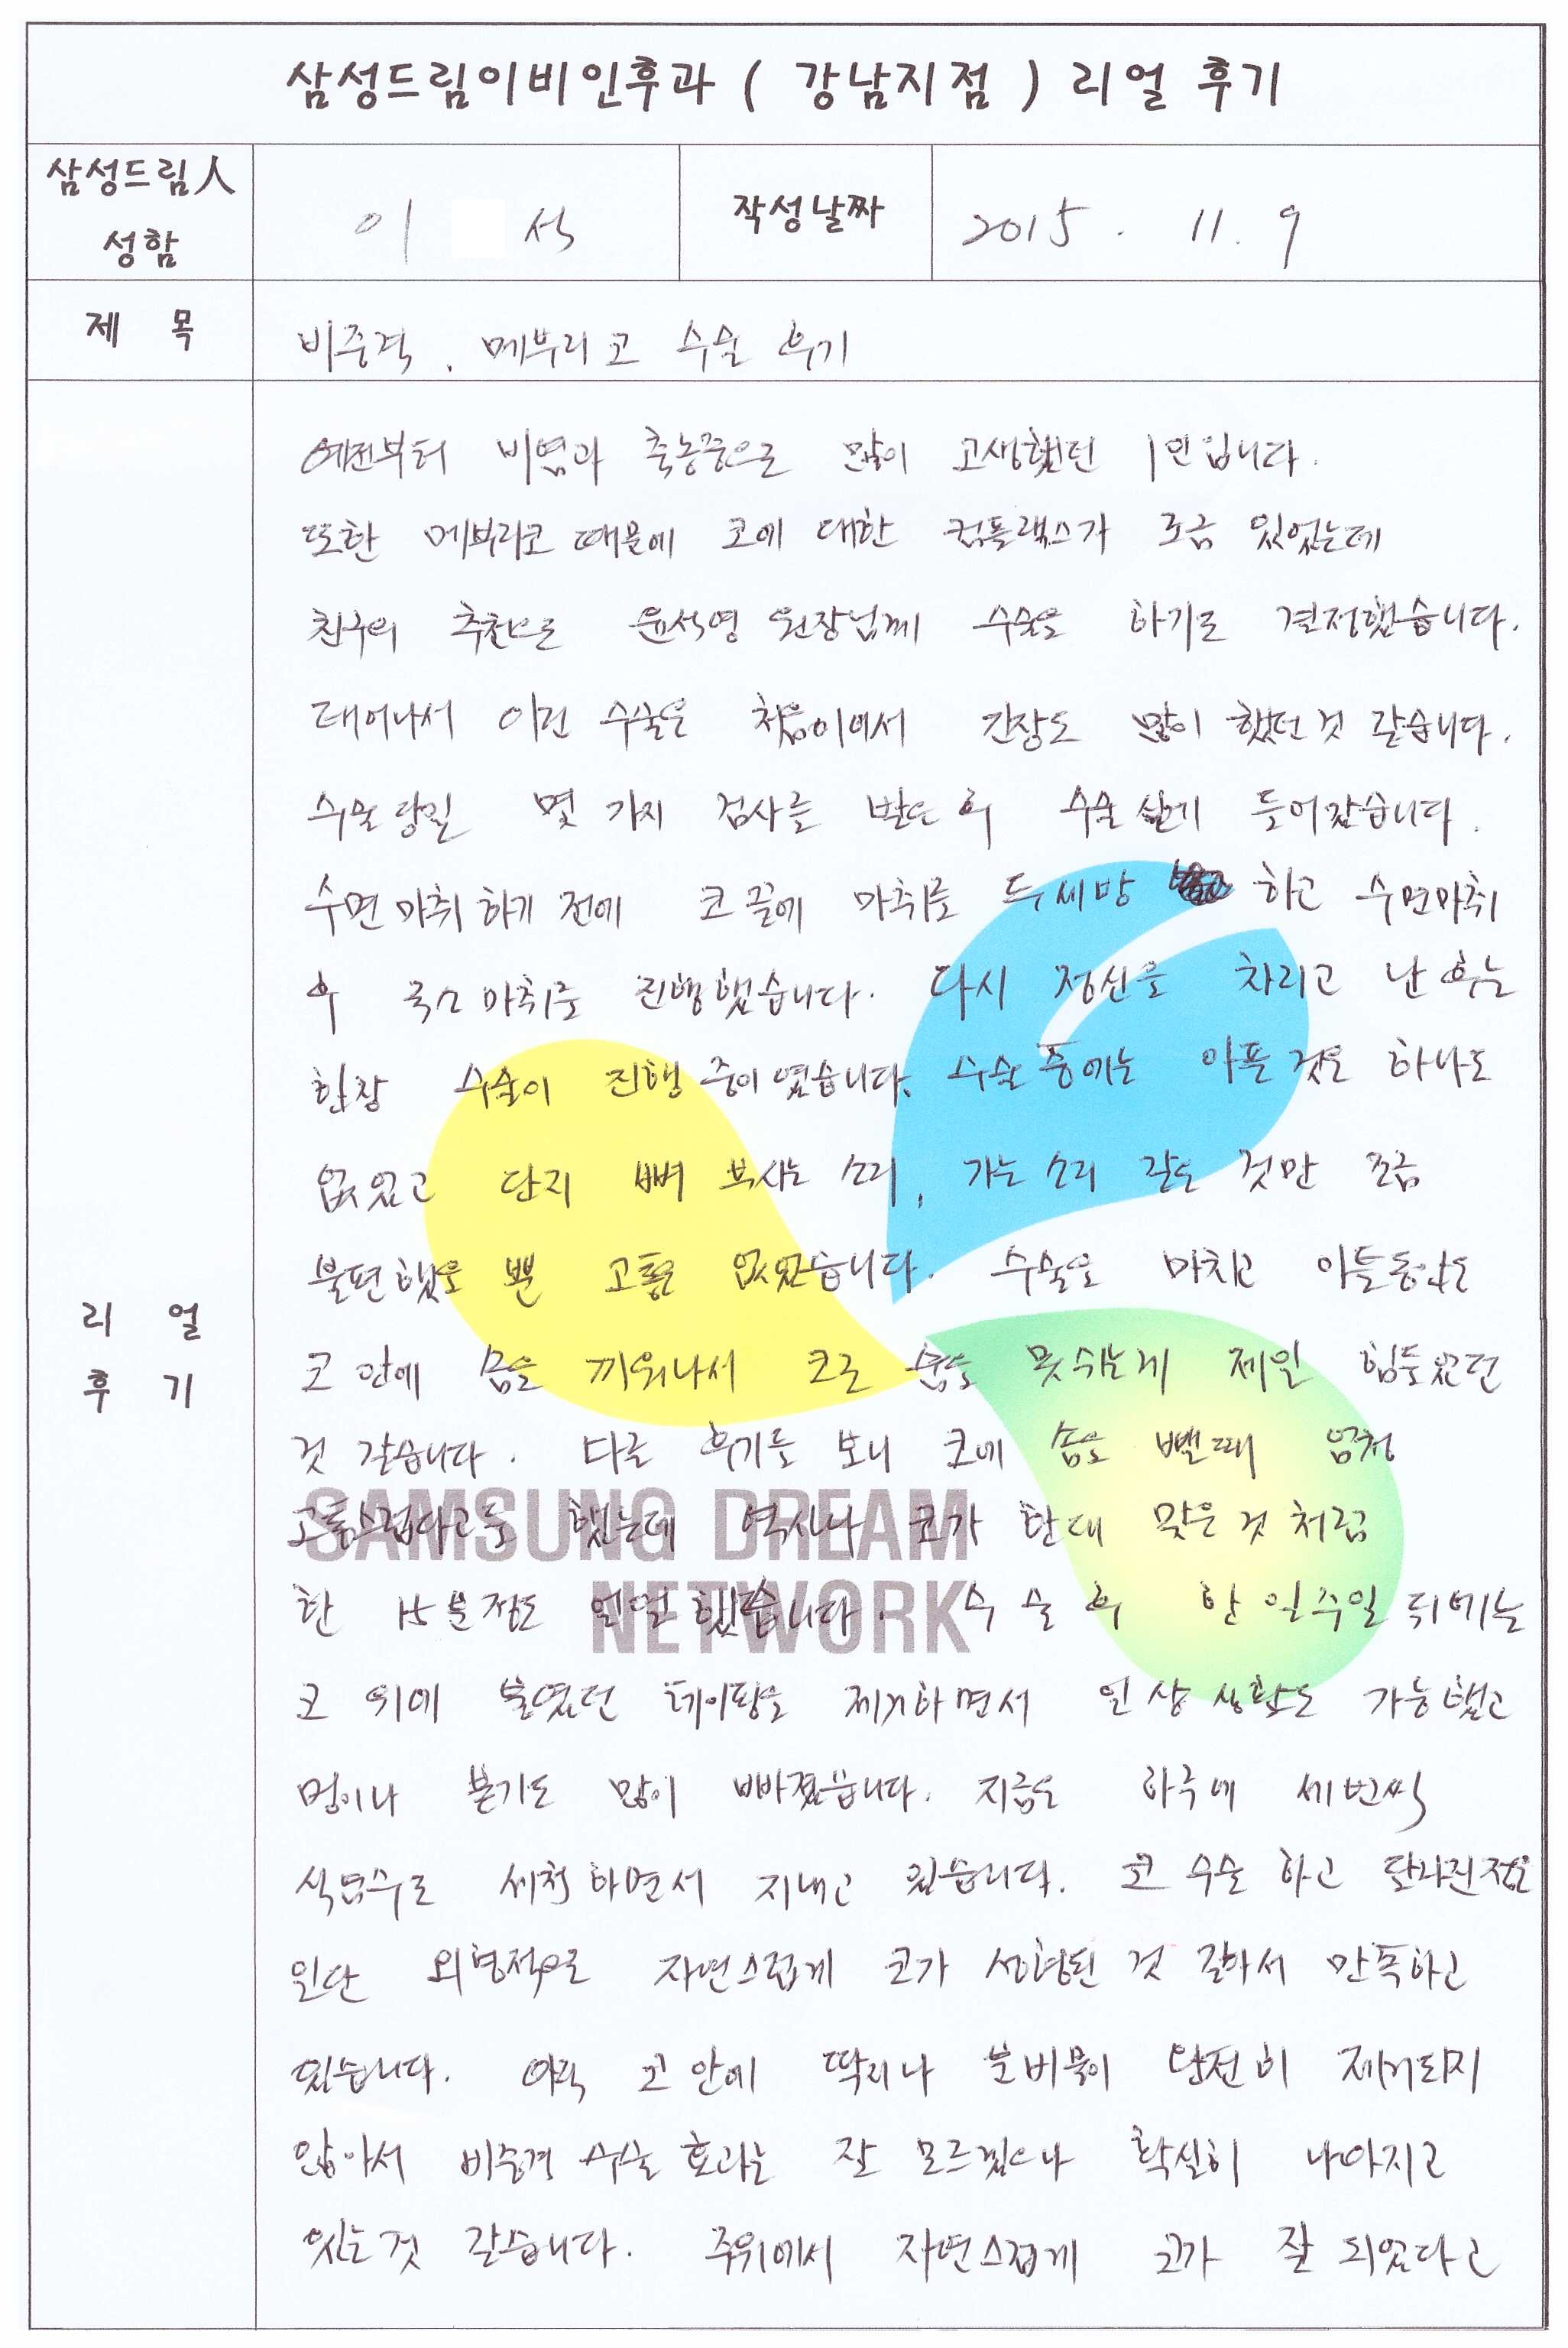 삼성드림이비인후과 ( 강남지점 ) 리얼 후기
삼성드림人 성함
이 석
작성날짜
2015. 11. 9
제 목
비중격, 메부리코 수술 후기
리 얼
후 기
예전부터 비염과 축농증으로 많이 고생했던 1인입니다.
또한 메부리코 때문에 코에 대한 컴플렉스가 조금 있었는데
친구의 추천으로 윤석영 원장님께 수술을 하기로 결정했습니다.
태어나서 이런 수술은 처음이여서 긴장도 많이 했던 것 같습니다.
수술 당일 몇 가지 검사를 받은 후 수술실에 들어갔습니다.
수면마취 하기 전에 코 끝에 마취를 두세방 하고 수면마취
후 국소마취를 진행했습니다. 다시 정신을 차리고 난 후는
한창 수술이 진행 중이였습니다. 수술 중에는 아픈 것은 하나도
없었고 단지 뼈 부시는 소리, 가는 소리 같은 것만 조금
불편했을 뿐 고통은 없었습니다. 수술을 마치고 이틀동안은
코 안에 솜을 끼워놔서 코로 숨을 못쉬는게 제일 힘들었던
것 같습니다. 다른 후기를 보니 코에 솜을 뺄때 엄청
고통스럽다고들 했는데 역시나 코가 한대 맞은 것 처럼
한 15분정도 얼얼했습니다. 수술 후 한 일주일 뒤에는
코 위에 붙였던 테이핑을 제거하면서 일상생활도 가능했고
멍이나 붓기도 많이 빠졌습니다. 지금도 하루에 세번씩
식염수로 세척하면서 지내고 있습니다. 코 수술 하고 달라진점은
일단 외형적으로 자연스럽게 코가 성형된 것 같아서 만족하고
있습니다. 아직 코 안에 딱지나 분비물이 완전히 제거되지
않아서 비중격 수술 효과는 잘 모르겠으나 확실히 나아지고
있는 것 같습니다. 주위에서 자연스럽게 코가 잘 되었다고
SAMSUNG DREAM
NETWORK